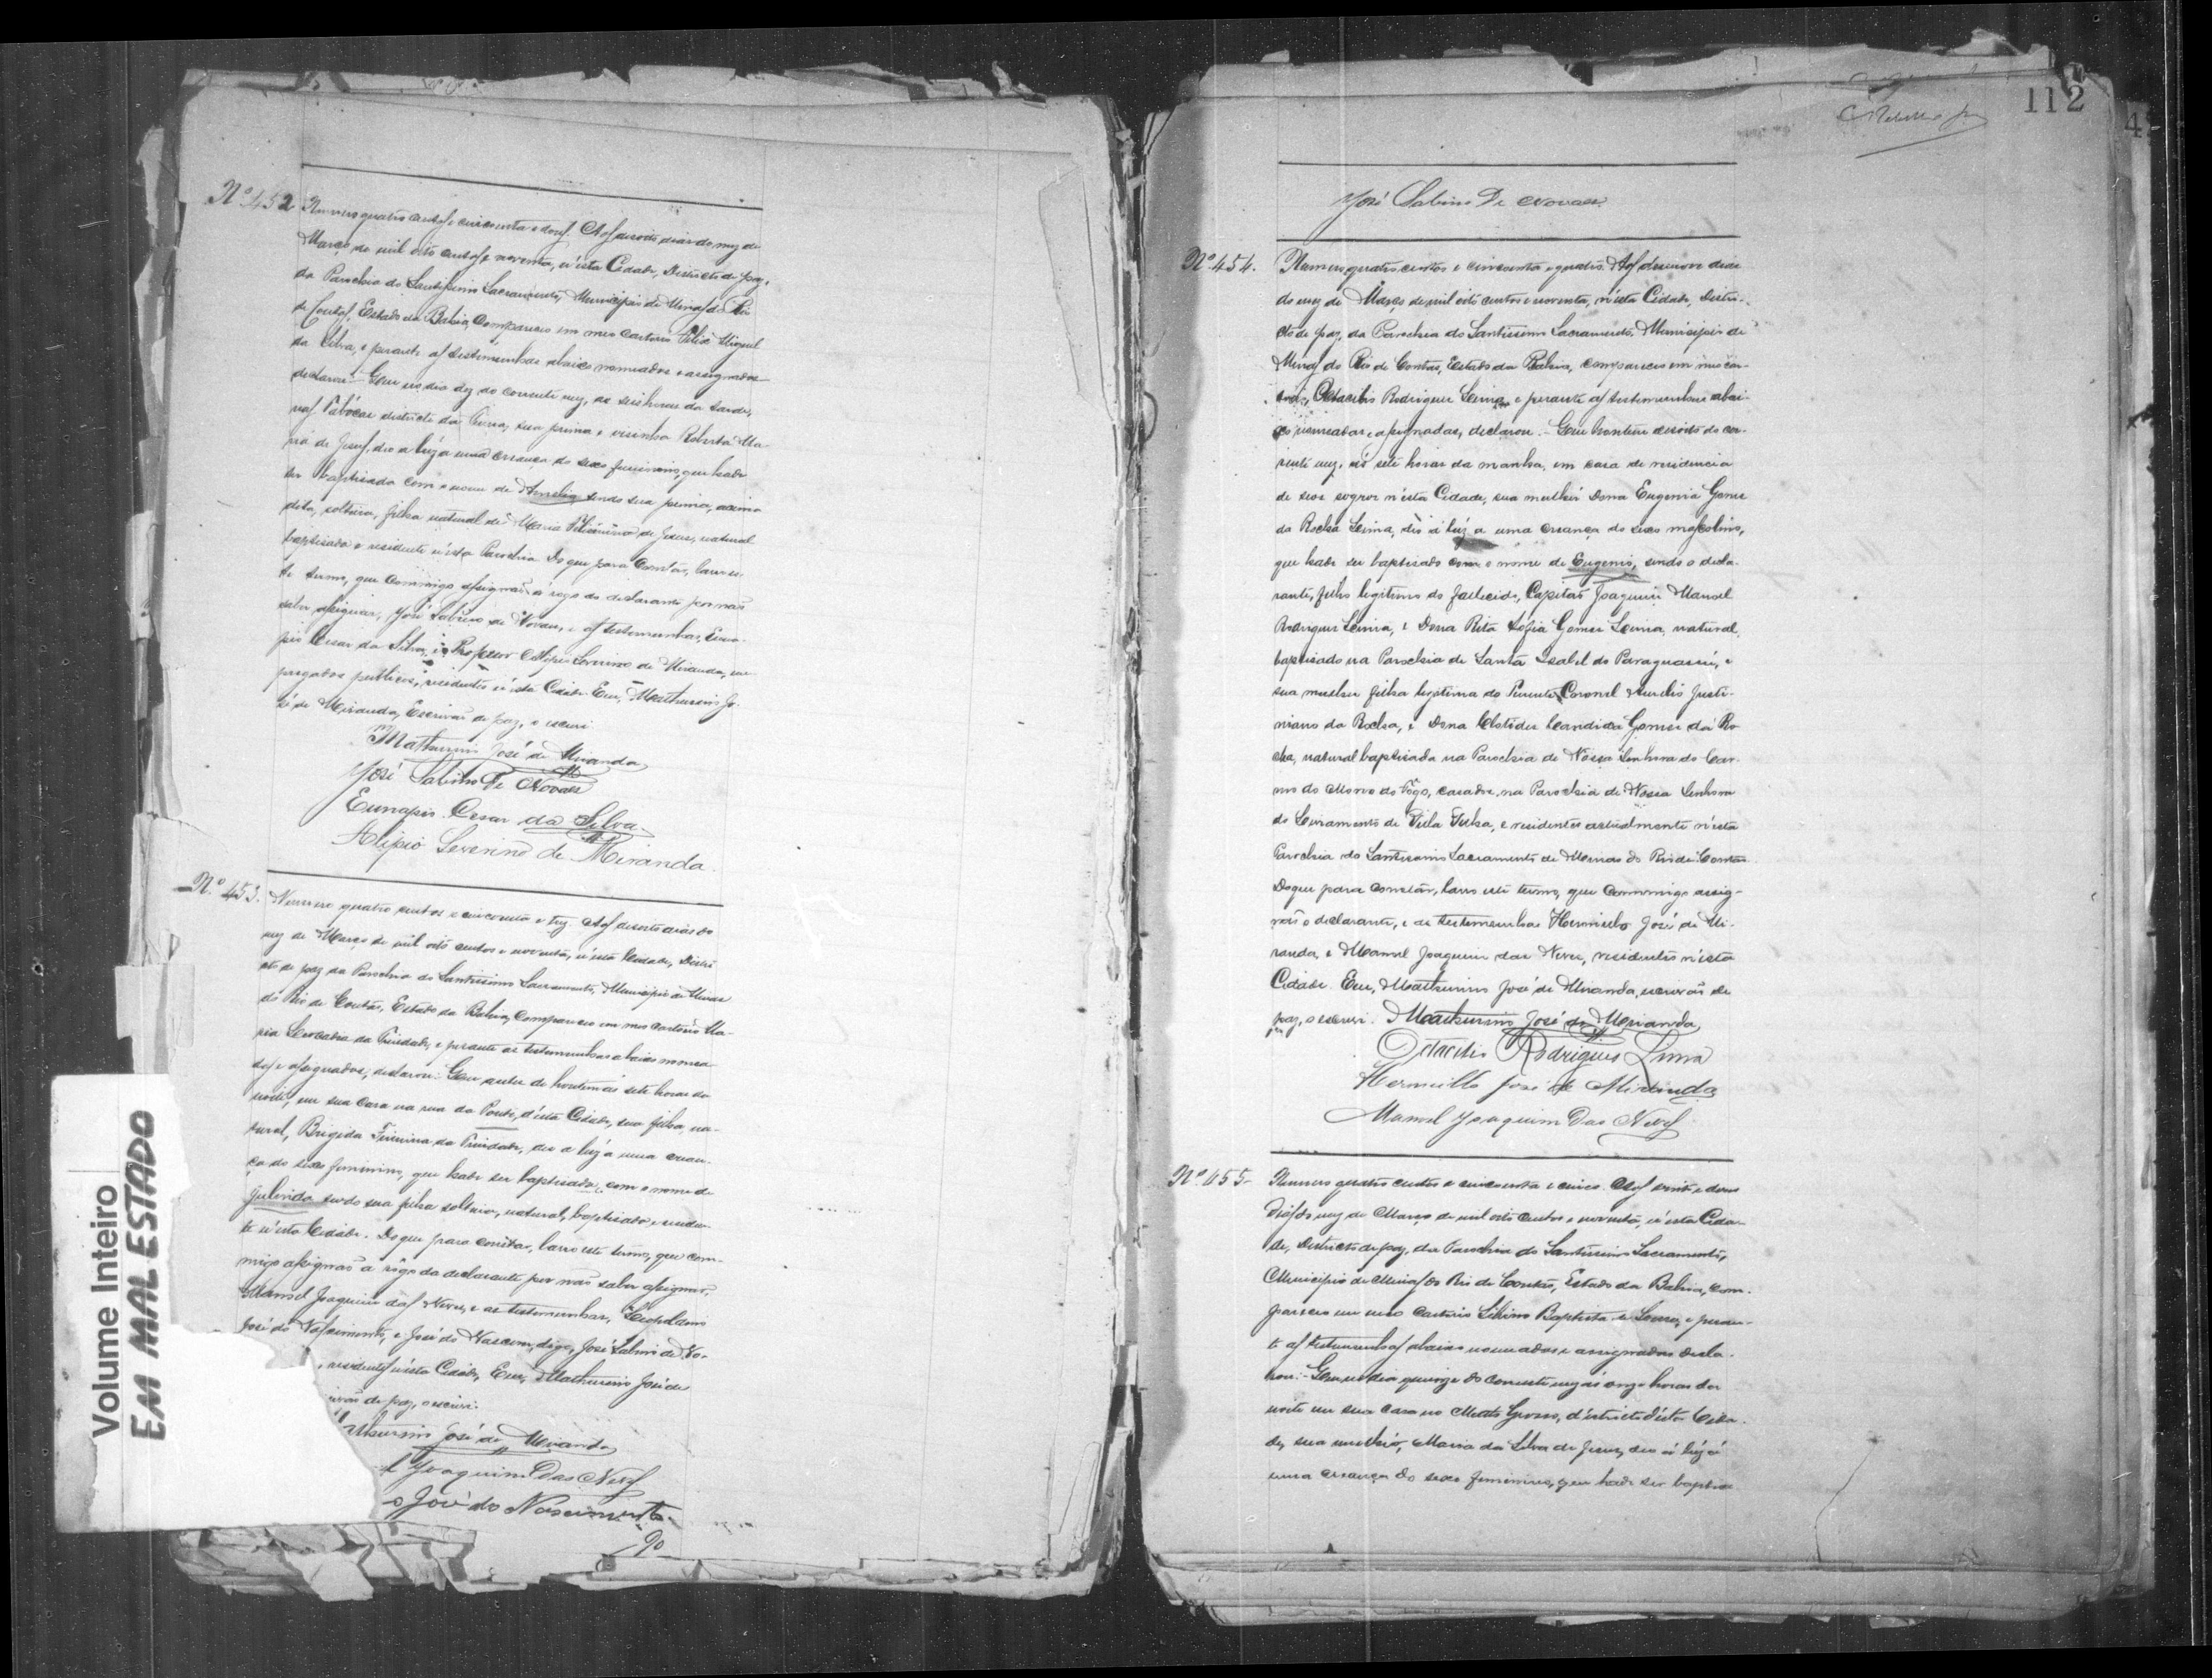 Nº 452
Numero quatro centos e cincoenta e dous. Aos desoito dias do mez de
Março de mil oito centos e noventa, n'esta Cidade, Districto de paz,
da Parochia do Santissimo Sacramento, Municipio de Minas do Rio
de Contas, Estado da Bahia, compareceo em meo cartorio Felix Miguel
da Silva, e perante as testemunhas abaixo nomeadas e assignadas
declarou: Que no dia dez do corrente mez, as seis horas da tarde,
nas Tabócas districto da Furna, sua prima e visinha Roberta Ma-
ria de Jesus, deo a lúz a uma creança do sexo feminino, que hade
ser baptisada com o nome de Amelia sendo sua prima, acima
dita, solteira, filha natural de Maria Feliciana de Jesus, natural
baptisada e residente n'esta Parochia. Do que para constar, lavro es-
te termo, que commigo assignaõ a rogo do declarante por naõ
saber assignar, José Sabino de Novaes, e as testemunhas, Euna-
pio Cesar da Silva, e Professor Alipio Severino de Miranda, em-
pregados publicos, residentes n'esta Cidade. Eu, Mathurino Jo-
sé de Miranda, Escrivaõ de paz, o escrevi.
Mathurino José de Miranda
José Sabino De Novaes
Eunapio Cesar da Silva
Alipio Severino de Miranda
Nº 453.
Numero quatro centos e cincoenta e trez. Aos desoito dias do
mez de Março de mil oito centos e noventa, n'esta Cidade, Distri-
cto de paz da Parochia do Santissimo Sacramento, Municipio de Minas
do Rio de Contas, Estado da Bahia, compareceo em meo cartorio Ma-
ria Leocadia da Trindade, e perante as testemunhas abaixo nomea-
das e assignadas, declarou: Que antes de hontem ás sete horas da
noite, em sua casa na rua da Ponte, d'esta Cidade, sua filha, na-
tural, Brigida Firmina da Trindade, deo a lúz a uma crean-
ça do sexo feminino, que hade ser baptisada, com o nome de
Julinda sendo sua filha solteira, natural, baptisada e residen-
te n'esta Cidade. Do que para constar, lavro este termo, que com-
migo assignaõ a rôgo da declarante por naõ saber assignar,
Manoel Joaquim das Neves, e as testemunhas, Leopoldino
José do Nascimento, e José do Nascim, digo, José Sabino de No-
, residentes n'esta Cidade, Eu, Mathurino José de
ivaõ de paz, o escrevi.
athurino José de Miranda
l Joaquim Das Neves
o José do Nascimento
Volume Inteiro
EM MAL ESTADO
112
4
José Sabino De Novaes.
Nº 454.
Numero quatro centos e cincoenta e quatro. Aos desenove dias
do mez de Março de mil oito centos e noventa, n'esta Cidade, Distri-
cto de paz, da Parochia do Santissimo Sacramento, Municipio de
Minas do Rio de Contas, Estado da Bahia, compareceo em meo car-
torio, Octacilio Rodrigues Leima, e perante as testemunhas abai-
xo nomeadas, e assignadas, declarou:- Que hontem desoito do cor-
rente mez, as sete horas da manha, em casa de residencia
de seos sogros n'esta Cidade, sua mulher Dona Eugenia Gomes
da Rocha Leima, deo a lúz a uma creança do sexo mascolino,
que hade ser baptisado com o nome de Eugenio, sendo o decla-
rante, filho legitimo do fallecido, Capitaõ Joaquim Manoel
Rodrigues Leima, e Dona Rita Sofia Gomes Leima, natural,
baptisado na Parochia de Santa Isabel do Paraguassú, e
sua mulher filha legitima do Tenente Coronel Aurelio Justi-
niano da Rocha, e Dona Clotides Candida Gomes da Ro-
cha, natural baptisada na Parochia de Nossa Senhora do Car-
mo do Morro do Fôgo, casados, na Parochia de Nossa Senhora
do Livramento de Villa Velha, e residentes actualmente n'esta
Parochia do Santissimo Sacramento de Minas do Rio de Contas
Do que para constar, lavro este termo, que commigo assig-
naõ o declarante, e as testemunhas Hermillo José de Mi-
randa, e Manoel Joaquim das Neves, residentes n'esta
Cidade. Eu, Mathurino José de Miranda, escrivaõ de
paz, o escrevi. Mathurino José de Miranda
Octacilio Rodrigues Lima
Hermillo José de Miranda
Manoel Joaquim Das Neves
Nº 455-
Numero quatro centos e cincoenta e cinco. Aos vinte e dous
dias do mez de Março de mil oito centos e noventa, n'esta Cida-
de, Districto de paz, da Parochia do Santissimo Sacramento,
Municipio de Minas do Rio de Contas, Estado da Bahia, com-
pareceo em meo cartorio Baptista de Souza, e peran-
te as testemunhas abaixo nomeadas e assignadas decla-
rou:- Que no dia quinze do corrente mez ás onze horas da
noite em sua casa no Matto Grosso, districto d'esta Cida-
de, sua mulher, Maria da Silva de Jesus, deo á lúz á
uma creança do sexo feminino, que hade ser baptisa